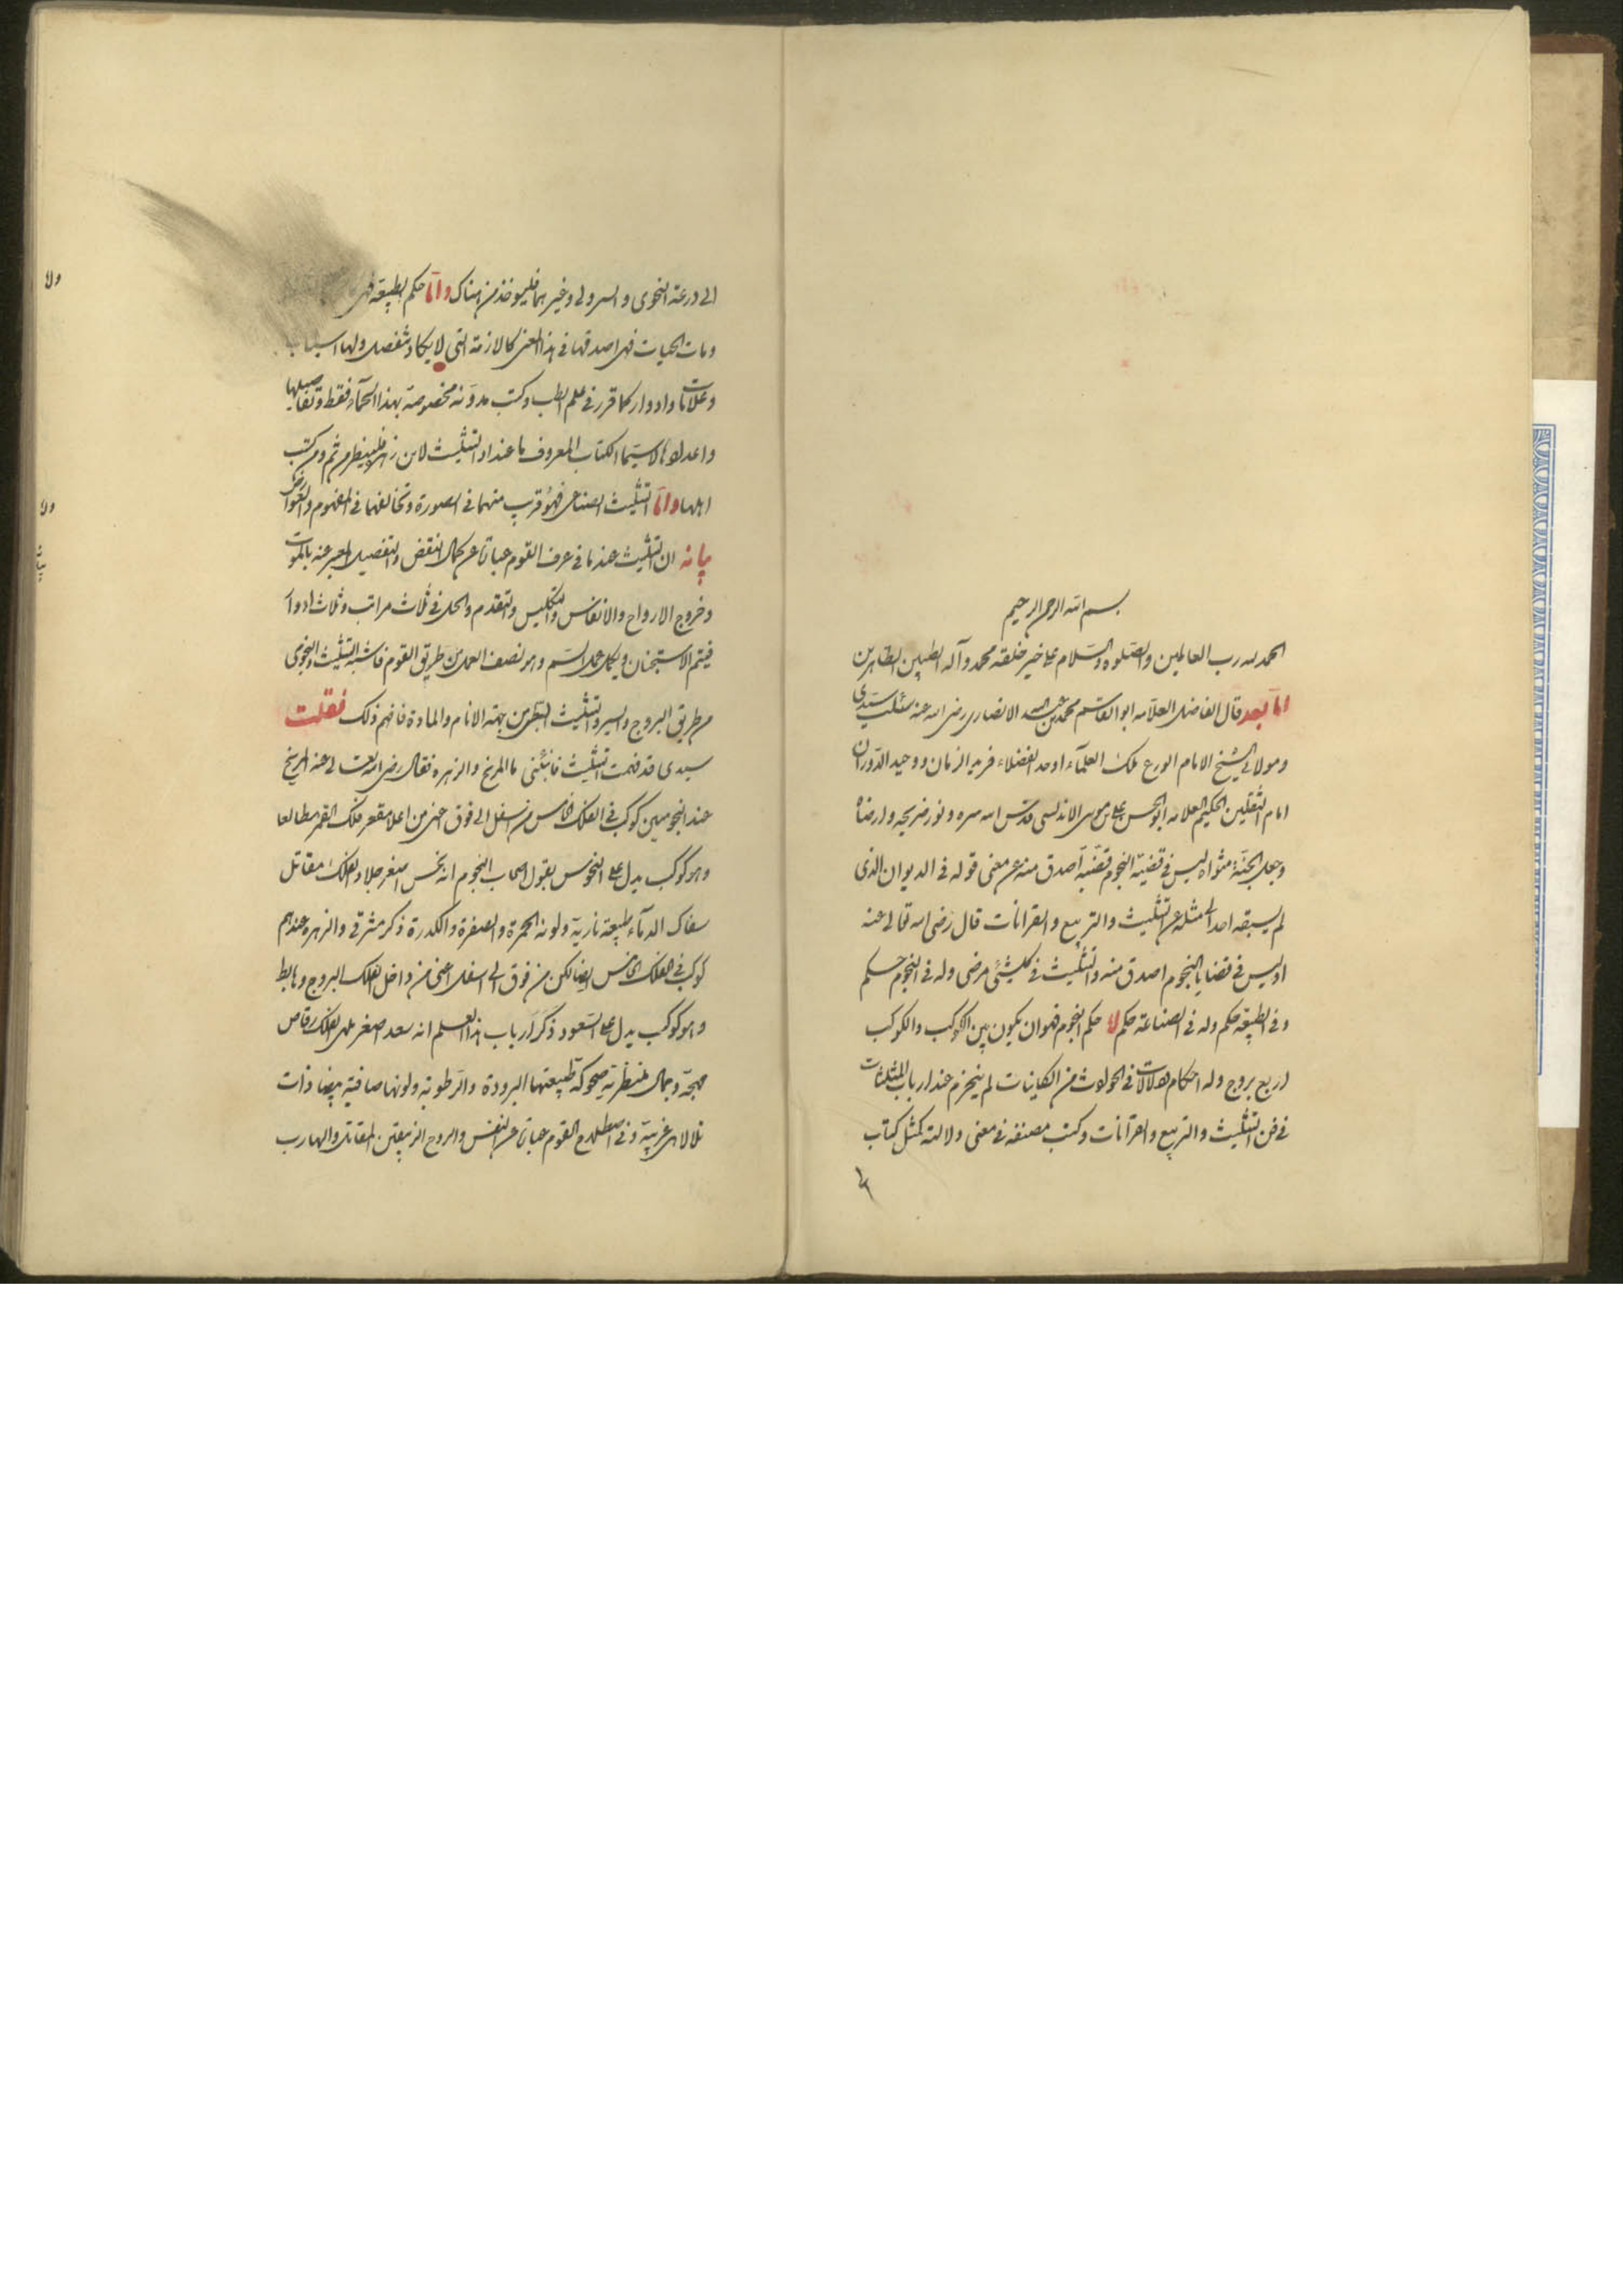 بسم الله الرحمن الرحيم
الحمد لله رب العالمين والصلوة والسلام على خير خلقه محمد وآله الطيبين الطاهرين
اما بعد قال الفاضل العلامه ابو القاسم محمد بن عبد الله الانصارى رضى الله عنه سئلت سيدى
ومولائى الشيخ الامام الورع ملك العلمآء اوحد الفضلاء فريد الزمان ووحيد الدوران
امام الثقلين الحكيم العلامه ابو الحسن على بن موسى الاندلسى قدس الله سره ونور ضريحه وارضاه
وجعل الجنة مثواه ليس فى قضية النجوم قضية اصدق منه عن معنى قوله فى الديوان الذى
لم يسبقه احد الى مثله عن التثليث والتربيع والقرانات قال رضى الله تعالى عنه
اوليس فى قضايا النجوم اصدق منه والتثليث فى كل شئ مرضى وله فى النجوم حكم
وفى الطبيعة حكم وله فى الصناعة حكم حكم النجوم فهو ان يكون بين الكوكب والكوكب
اربع بروج وله احكام ودلالات فى الحوادث من الكاينات لم ينخرم عند ارباب المثلثات
فى فن التثليث والتربيع والقرآنات وكتب مصنفه فى معنى دلالته كمثل كتاب
الى درعة النحوى والسرولى وغيرهما فليوخذ من هناك واما حكم الطبيعة فهى
ومات الحميات فهى اصدقها فى هذا المعنى كالازمة التى لا يكاد تنفصل ولها اسباب
وعلامات وادوار كما قرر فى علم الطب وكتب مدونه مخصوصة بهذا الحمآء فقط وتفاصيلها
واعدادها لا سيما الكتاب المعروف باعداد التثليث لابن زهر فلينظر من ثم ومن كتب
اهلها واما التثليث الصناعى فهو قريب منهما فى الصورة وتخالفهما فى المفهوم والعوارض
بيانه ان التثليث عندنا فى عرف القوم عبارة عن كمال النقض والتفصيل المعبر عنه بالموت
وخروج الارواح والانفاس والتكليس والتقدم والحل فى ثلاث مراتب وثلاث ادوار
فيتم الاستجنان ويكمل عمل السم وهو نصف العمل من طريق القوم فاشبه التثليث النجومى
من طريق البروج والسير والتثليث الطبى من جهة الانام والمادة فافهم ذلك فقلت
سيدى قد فهمت التثليث فانبئنى ما المريخ والزهره فقال رضى الله تعالى عنه المريخ
عند النجوميين كوكب فى الفلك الخامس من اسفل الى فوق اعنى من اعلا مقعر فلك القمر مطالعا
وهو كوكب يدل على النحوس بقول اصحاب النجوم انه نحس اصغر جلاد الفلك مقاتل
سفاك الدمآء طبيعته نارية ولونه الحمرة والصفرة والكدرة ذكر مشرقى والزهره عندهم
كوكب فى الفلك الخامس ايضا لكن من فوق الى اسفل اعنى من داخل الفلك البروج وهابط
وهو كوكب يدل على السعود ذكر ارباب هذا العلم انه سعد اصغر ملهى الفلك رقاص
مهجة وجمال منظرته ضحوكة طبيعتها البرودة والرطوبة ولونها صافية بيضا ذات
تلالا هى غربية وفى اصطلاح القوم عبارة عن النفس والروح الزيبقين المقاتل والهارب